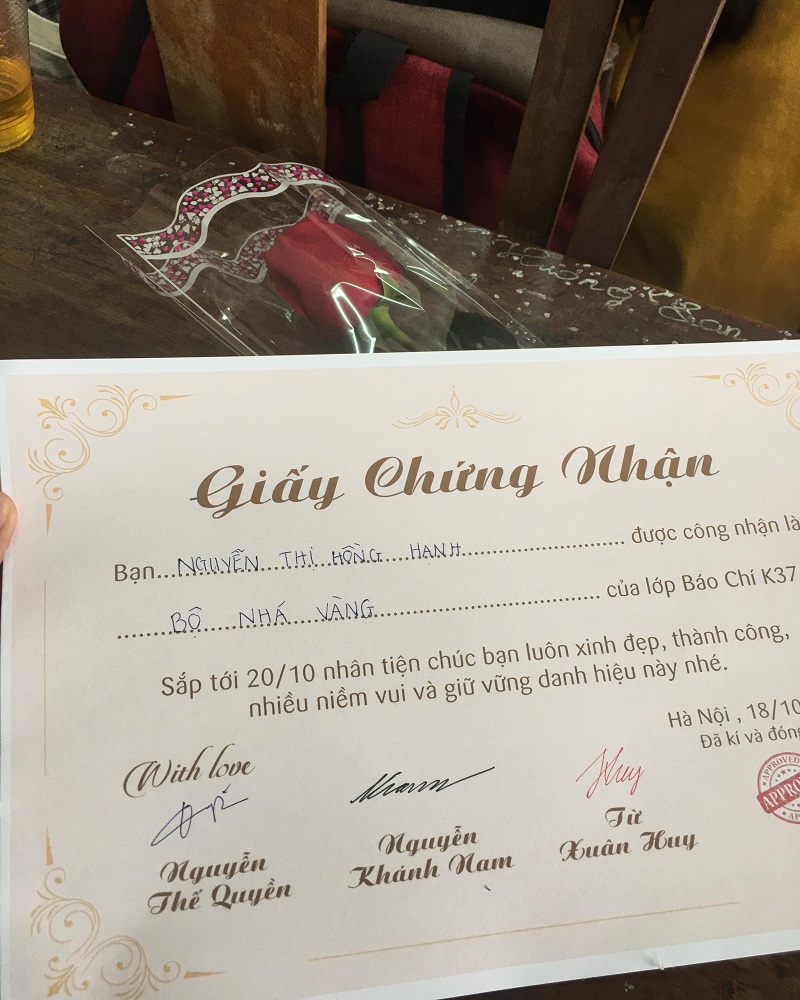 Giấy Chứng Nhận
Bạn...NGUYỄN THỊ HỒNG HẠNH........................ được công nhận là
.......BỘ NHÁ VÀNG.................................. của lớp Báo Chí K37
Sắp tới 20/10 nhân tiện chúc bạn luôn xinh đẹp, thành công,
nhiều niềm vui và giữ vững danh hiệu này nhé.
Hà Nội , 18/10
Đã kí và đóng
With love
APPROVED
Huy
Nguyễn
Thế Quyền
Nguyễn
Khánh Nam
Từ
Xuân Huy